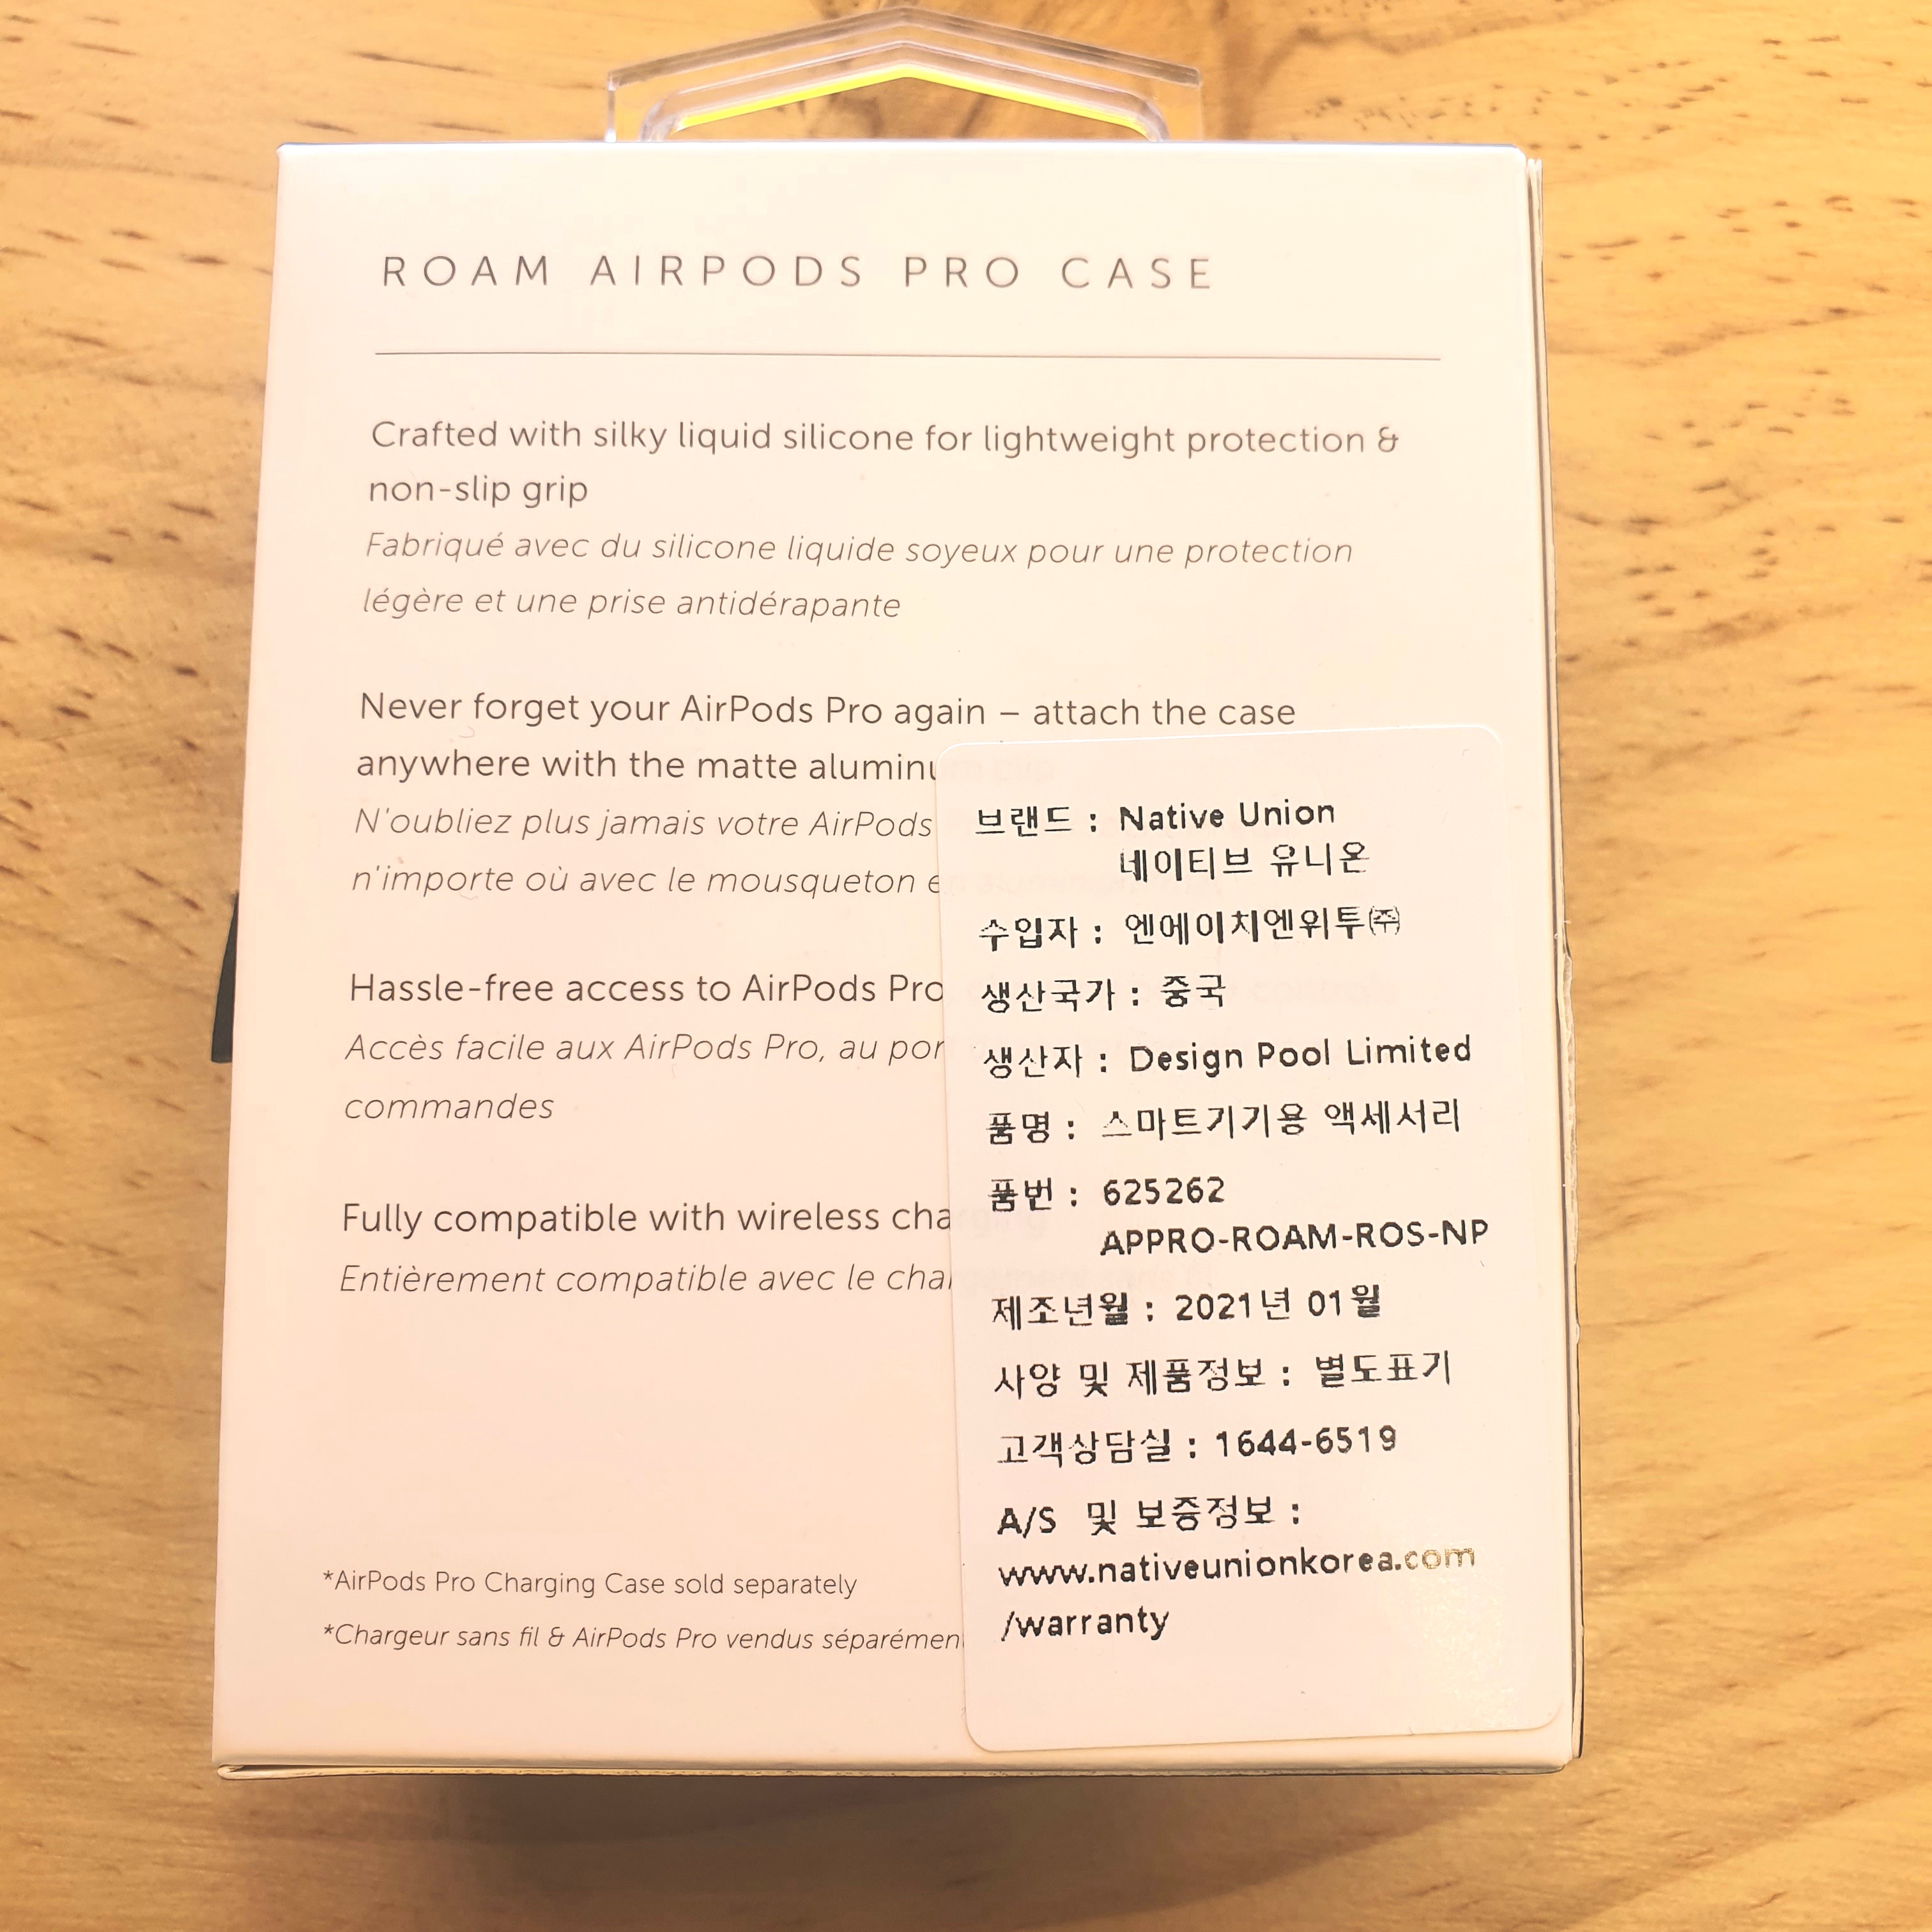 ROAM AIRPODS PRO CASE
Crafted with silky liquid silicone for lightweight protection &
non-slip grip
Fabriqué avec du silicone liquide soyeux pour une protection
légère et une prise antidérapante
Never forget your AirPods Pro again – attach the case
anywhere with the matte aluminum clip
N'oubliez plus jamais votre AirPods
n'importe où avec le mousqueton
Hassle-free access to AirPods Pro
Accès facile aux AirPods Pro, au
commandes
Fully compatible with wireless charging
Entièrement compatible avec le chargement sans fil
*AirPods Pro Charging Case sold separately
*Chargeur sans fil & AirPods Pro vendus
브랜드 : Native Union
네이티브 유니온
수입자 : 엔에이치엔위투㈜
생산국가 : 중국
생산자 : Design Pool Limited
품명 : 스마트기기용 액세서리
품번 : 625262
APPRO-ROAM-ROS-NP
제조년월 : 2021년 01월
사양 및 제품정보 : 별도표기
고객상담실 : 1644-6519
A/S 및 보증정보 :
www.nativeunionkorea.com
/warranty